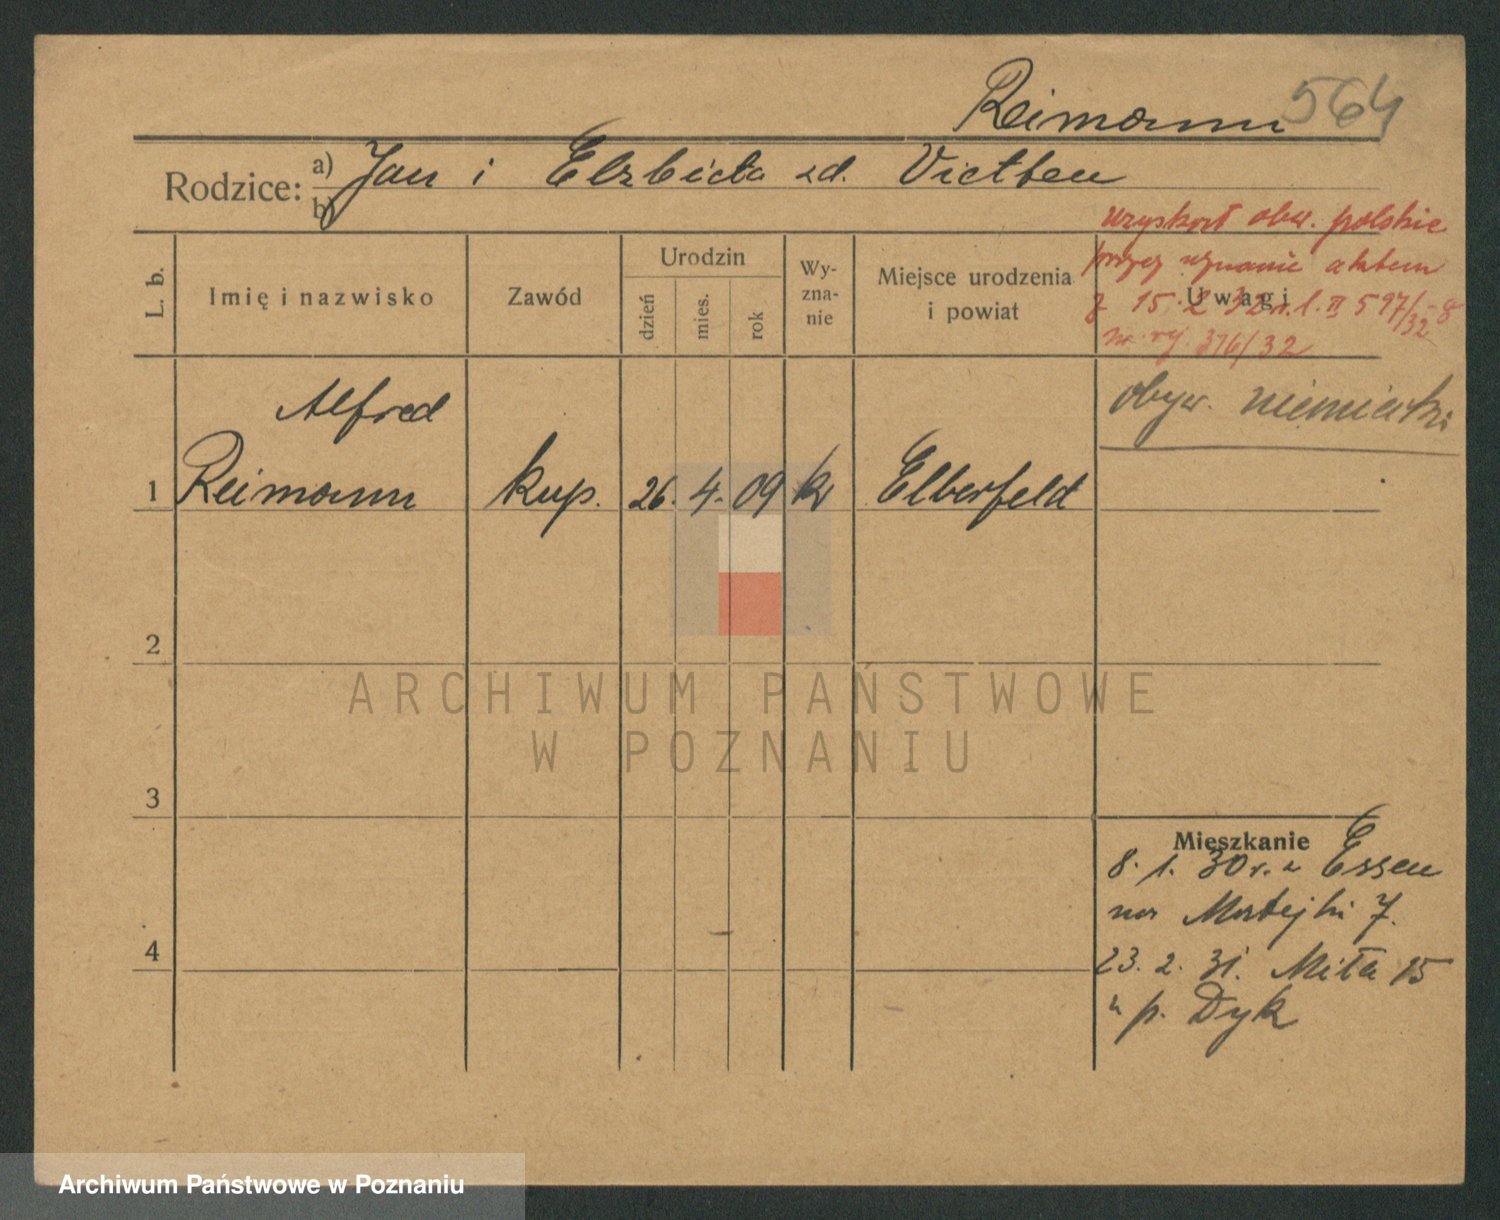 Reimann 564
Rodzice: a) Jan i Elżbieta zd. Viethen
b)
uzyskał obw. polskie
przez uznanie aktem
z 15.2 32 r. l. II 597/32-8
nr. rej. 376/32
L. b.
Imię i nazwisko
Zawód
Urodzin
dzień
mies.
rok
Wy-
zna-
nie
Miejsce urodzenia
i powiat
Uwagi
Alfred
1 Reimann kup. 26. 4. 09 Elberfeld
obyw. niemiecki
2
ARCHIWUM PAŃSTWOWE
W POZNANIU
3
Mieszkanie
8. 1. 30 r. z Essen
na Matejki 7.
4
23. 2. 31. Miła 15
u p. Dyk
Archiwum Państwowe w Poznaniu